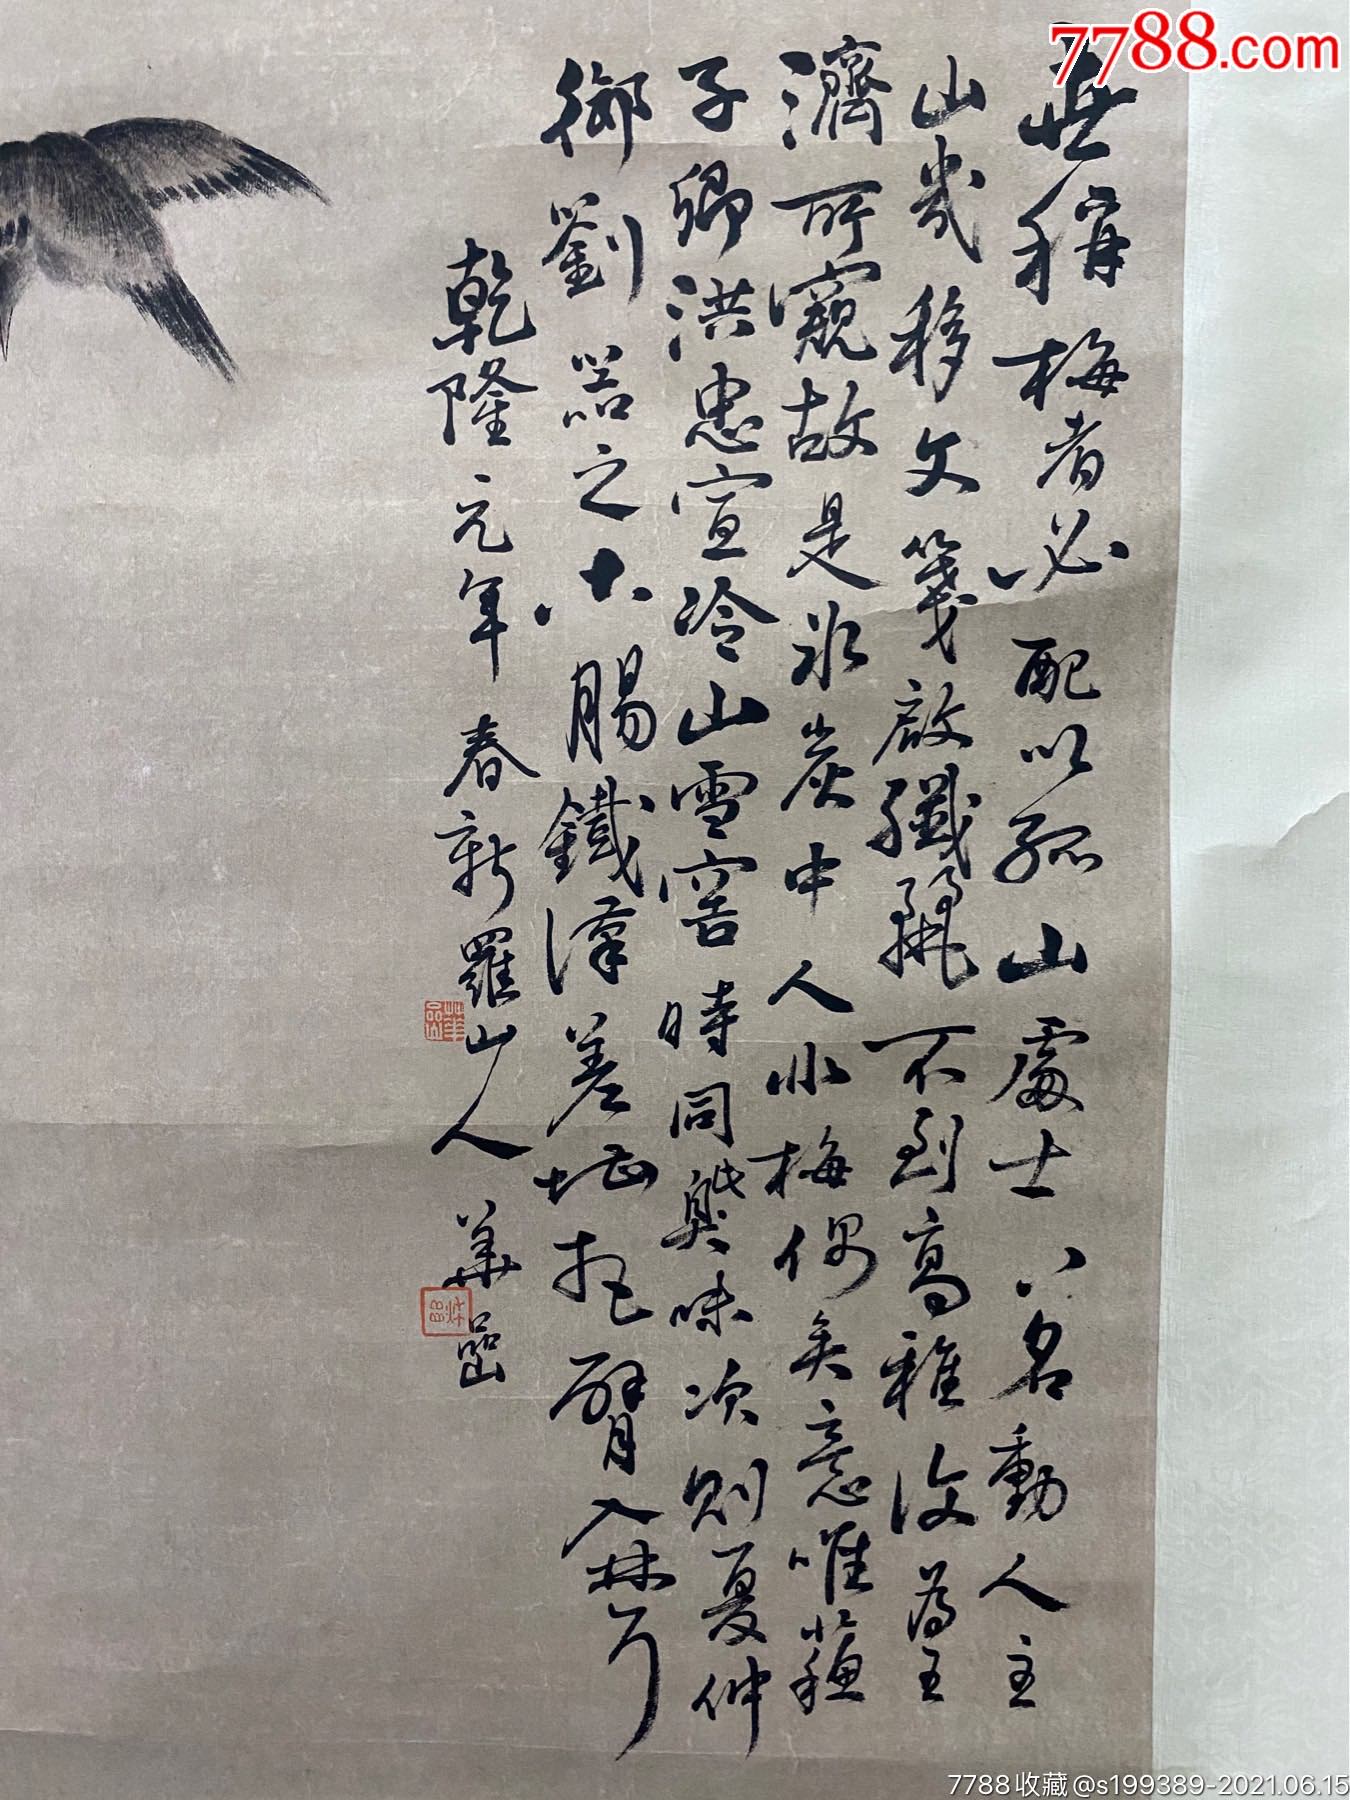 7788.com
世稱梅者必配以孤山處士以名動人主
山幾移文箋啟纖穠不到高雅後為王
濟所窺故是冰炭中人非梅偶矣意唯蘇
子卿洪忠宣冷山雪窖時同與味次則夏仲
御劉器之木腸鐵漢差堪把臂入林耳
乾隆元年春新羅山人華喦
7788收藏@s199389-2021.06.15